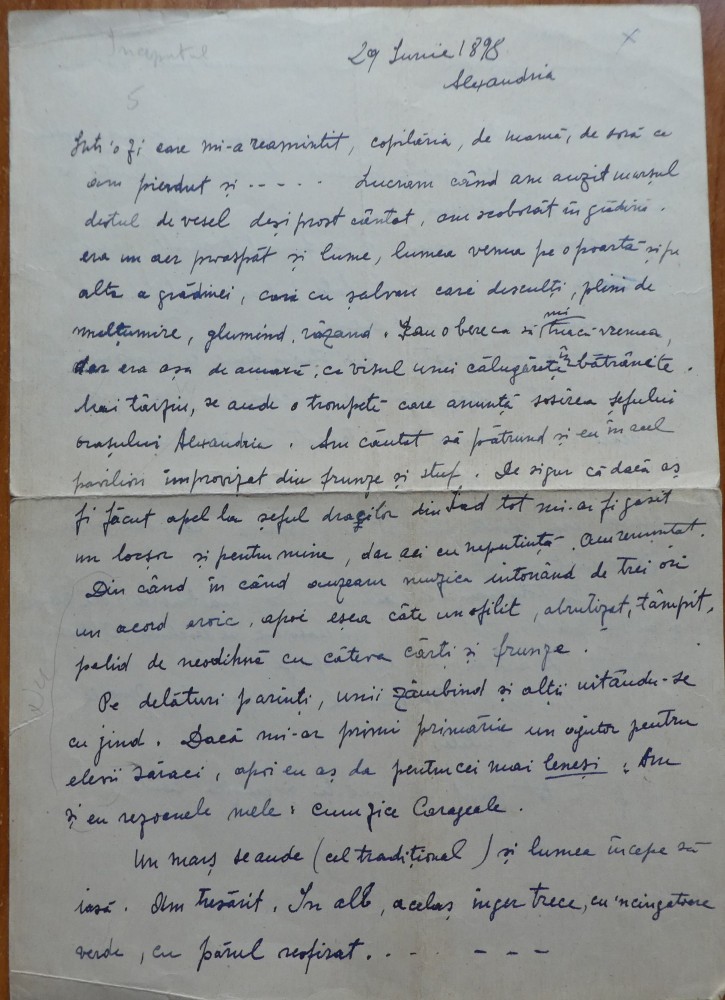 Începutul
5
x
29 Iunie 1898
Alexandria
Într'o zi care mi-a reamintit, copilăria, de mamă, de soră ce
am pierdut și ----- Lucram când am auzit marșul
destul de vesel deși prost cântat, am scoborât în grădină.
era un aer proaspăt și lume, lumea venea pe o poartă și pe
alta a grădinei, care cu șalvari care desculți, plini de
mulțumire, glumind, râzand. Iau o bere ca să mi treacă vremea,
dar era așa de amară, ca visul unei călugărițe îmbătrânite.
Mai târziu, se aude o trompetă care anunță sosirea șefului
orașului Alexandria. Am căutat să pătrund și eu în acel
pavilion improvizat din frunze și stuf. De sigur că dacă aș
fi făcut apel la șeful dracilor din Iad tot mi-ar fi gasit
un locșor și pentru mine, dar aci cu neputință. Am renuntat.
Din când în când auzeam muzica intonând de trei ori
un acord eroic, apoi eșea câte un ofilit, abrutizat, tâmpit,
palid de neodihnă cu câteva cărți și frunze.
Pe delături parinți, unii zâmbind și alții uitându-se
cu jind. Dacă mi-ar primi primăria un ajutor pentru
elevii săraci, apoi eu aș da pentru cei mai leneși. Am
și eu rezoanele mele: cum zice Carageale.
Un marș se aude (cel tradițional) și lumea începe să
iasă. Am tresărit. In alb, acelaș înger trece, cu 'ncingatoare
verde, cu părul resfirat. . - - - -